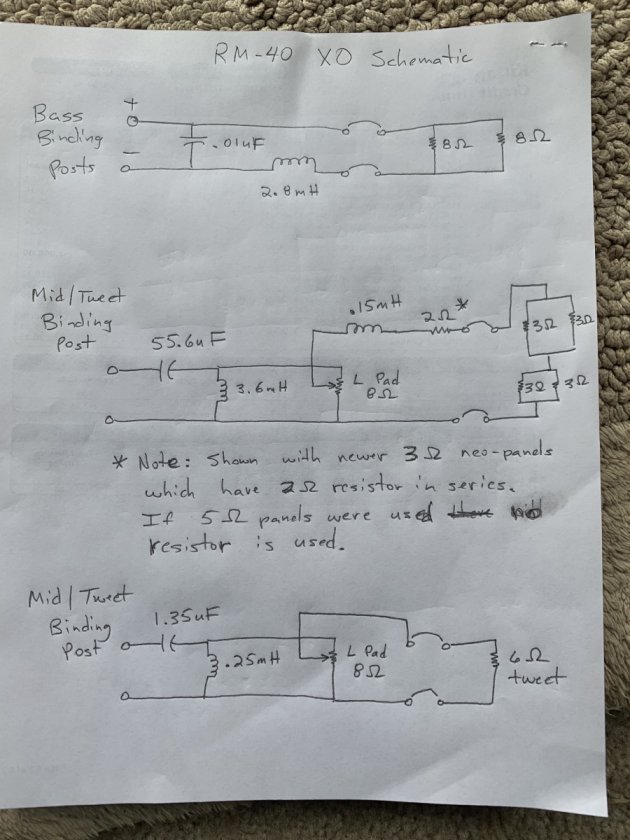 RM-40 XO Schematic
Bass
Binding
Posts
+
-
.01uF
2.8mH
8Ω
8Ω
Mid/Tweet
Binding
Post
55.6uF
3.6mH
.15mH
2Ω*
L Pad
8Ω
3Ω
3Ω
3Ω
3Ω
* Note: Shown with newer 3Ω neo-panels
which have 2Ω resistor in series.
If 5Ω panels were used no
resistor is used.
Mid/Tweet
Binding
Post
1.35uF
.25mH
L Pad
8Ω
6Ω
tweet